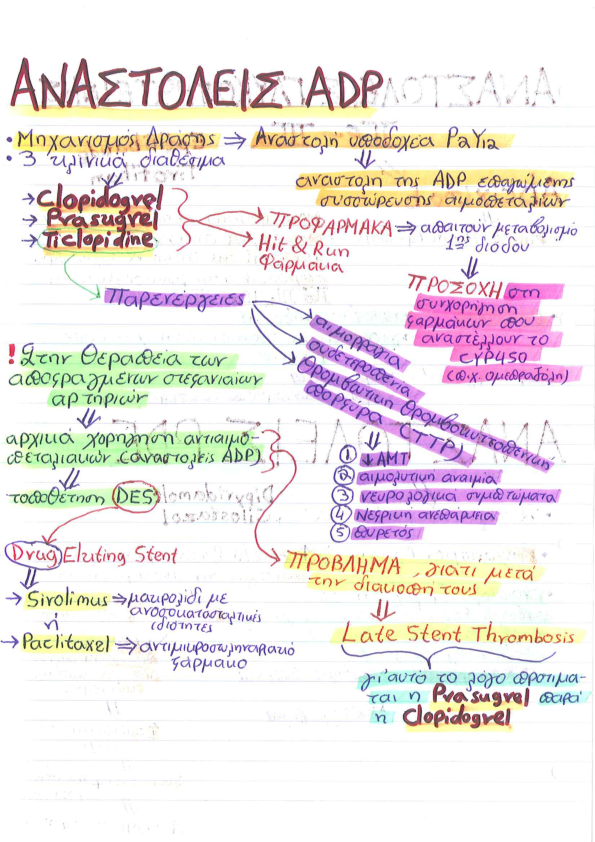 ΑΝΑΣΤΟΛΕΙΣ ADP
• Μηχανισμός Δράσης ⇒ Αναστολή υποδοχέα P2Y12
• 3 κλινικά διαθέσιμα
αναστολή της ADP επαγώμενης
συσσώρευσης αιμοπεταλίων
→ Clopidogrel
→ Prasugrel
→ Ticlopidine
ΠΡΟΦΑΡΜΑΚΑ ⇒ απαιτούν μεταβολισμό
1ης διόδου
Hit & Run
Φάρμακα
ΠΡΟΣΟΧΗ στη
συγχορήγηση
φαρμάκων που
αναστέλλουν το
CYP450
(π.χ. ομεπραζόλη)
Παρενέργειες
αιμορραγία
ουδετεροπενία
Θρομβωτική θρομβοκυτταροπενική
πορφύρα (TTP)
① ↓ΑΜΤ
② αιμολυτική αναιμία
③ νευρολογικά συμπτώματα
④ Νεφρική ανεπάρκεια
⑤ πυρετός
! Στην Θεραπεία των
αποφραγμένων στεφανιαίων
αρτηριών
αρχικά χορήγηση αντιαιμο-
πεταλιακών (αναστολείς ADP)
τοποθέτηση DES
Drug Eluting Stent
→ Sirolimus ⇒ μακρολίδι με
ανοσοκατασταλτικές
ιδιότητες
ή
→ Paclitaxel ⇒ αντιμικροσωληναριακό
φάρμακο
ΠΡΟΒΛΗΜΑ, γιατί μετά
την διακοπή τους
Late Stent Thrombosis
γι'αυτό το λόγο προτιμά-
ται η Prasugrel παρά
η Clopidogrel